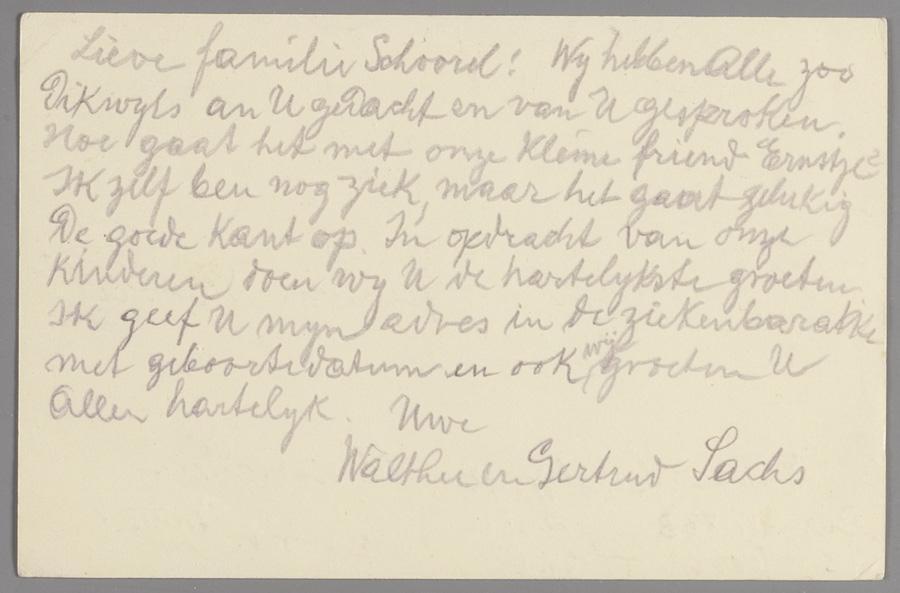 Lieve familie Schoorel! Wy hebben Alle zoo
Dikwyls an U gedacht en van U gesproken.
Hoe gaat het met onze kleine friend Ernstje?
Ik zelf ben nog ziek, maar het gaat gelukig
De goede Kant op. In opdracht van onze
Kinderen doen wy U de hartelykste groeten
Ik geef U myn adres in de ziekenbarakke
met geboortedatum en ook wij groeten U
Allen hartelyk. Uwe
Walther en Gertrud Sachs